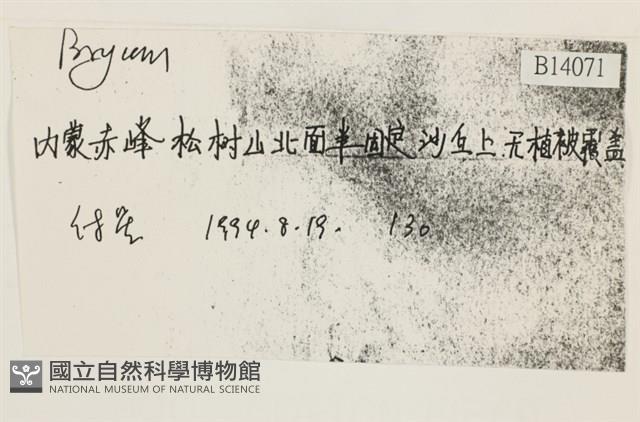 Bryum
B14071
内蒙赤峰松树山北面半固定沙丘上无植被覆盖
1994.8.19. 130
國立自然科學博物館
NATIONAL MUSEUM OF NATURAL SCIENCE